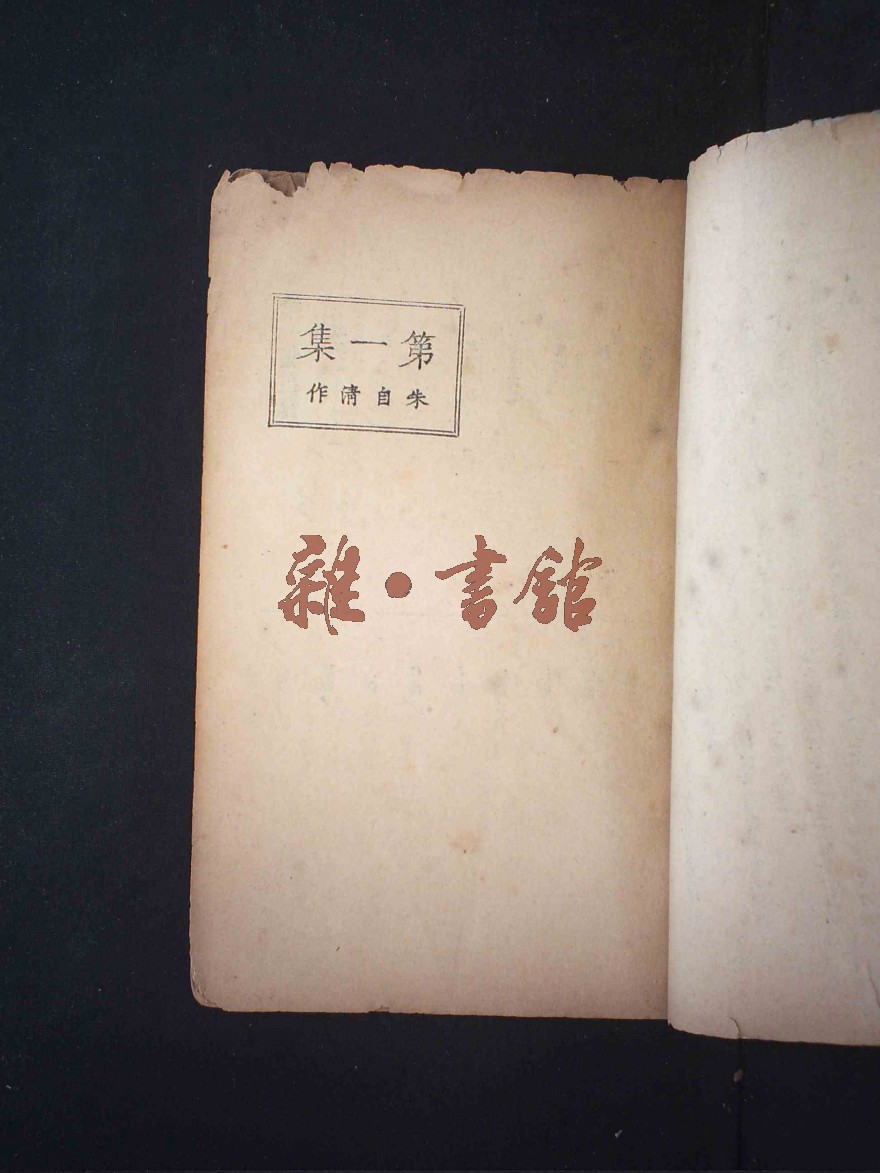 第一集
朱自清作
雜·書館